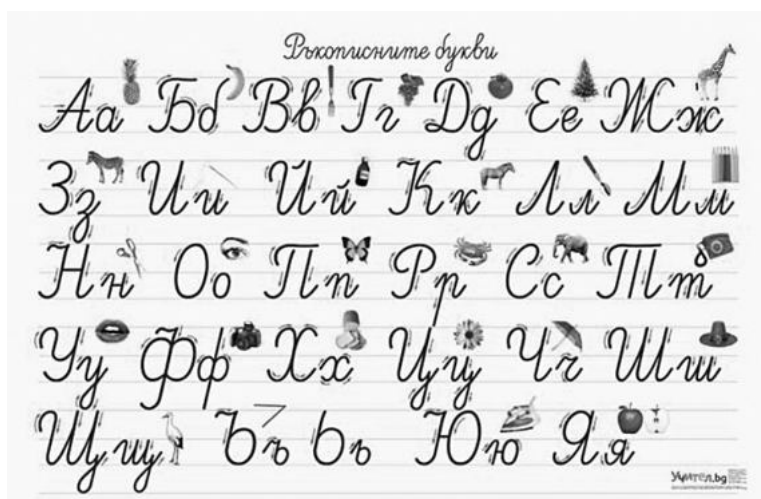 Ръкописните букви
Аа Бб Вв Гг Дд Ее Жж
Зз Ии Йй Кк Лл Мм
Нн Оо Пп Рр Сс Тт
Уу Фф Хх Цц Чч Шш
Щщ Ъъ ь Юю Яя
Учител.bg